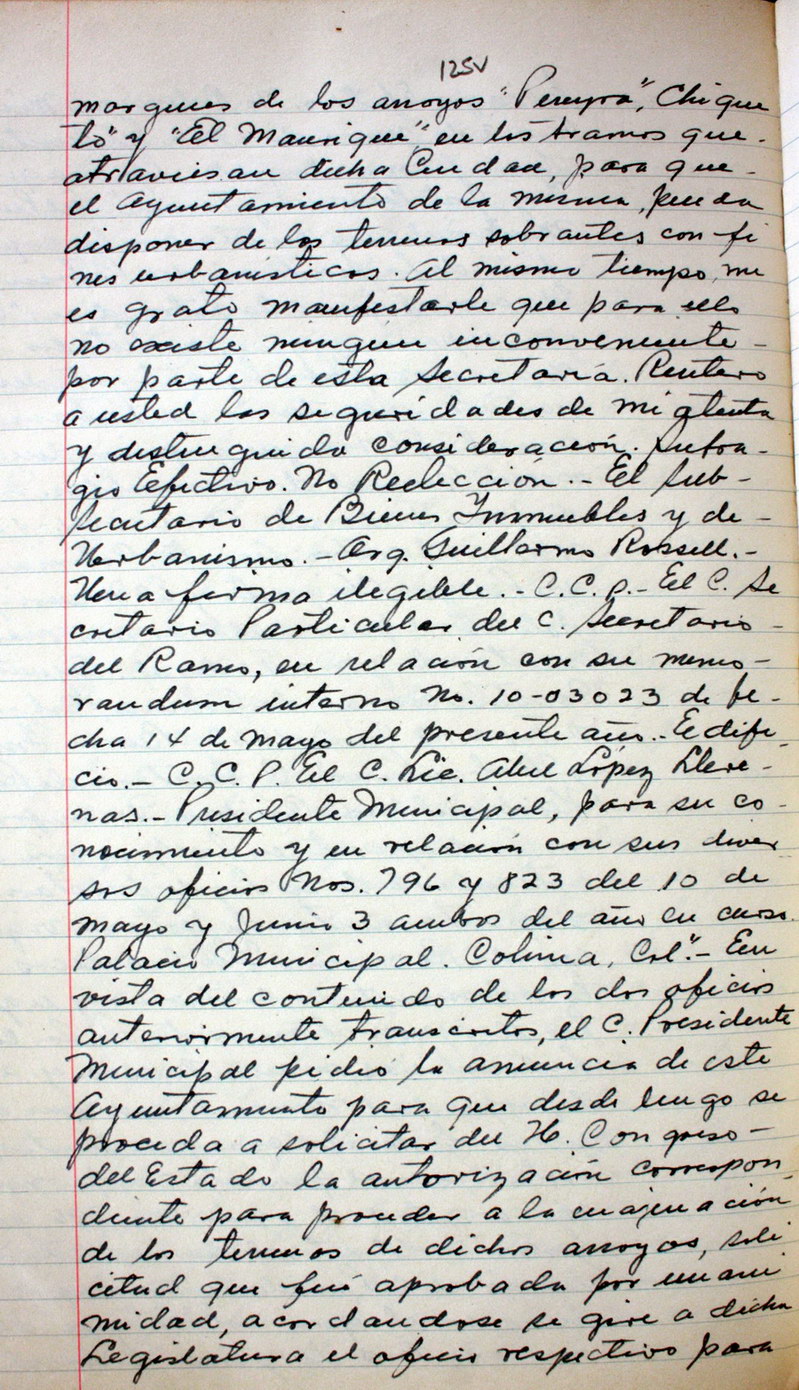 125V
margenes de los arroyos "Pereyra", Chiqui
to" y "El Manrique" en los tramos que-
atraviesan dicha Ciudad, para que-
el Ayuntamiento de la misma, pueda
disponer de los terrenos sobrantes con fi
nes urbanisticos. Al mismo tiempo, me
es grato manifestarle que para ello
no existe ningún inconveniente-
por parte de esta Secretaría. Reitero
a usted las seguridades de mi atenta
y distinguida consideración. Sufra-
gio Efectivo. No Reelección.- El Sub-
secretario de Bienes Inmuebles y de-
Urbanismo.- Arq. Guillermo Rossell.-
Una firma ilegible.- C.C.p.- El C. Se
cretario Particular del C. Secretario-
del Ramo, en relación con su memo-
randum interno No. 10-03023 de fe-
cha 14 de mayo del presente año.- Edifi-
cio.- C.C.P. El C. Lic. Abel López Llere-
nas.- Presidente Municipal, para su co-
nocimiento y en relación con sus diver
sos oficios Nos. 796 y 823 del 10 de
mayo y Junio 3 ambos del año en curso.
Palacio Municipal. Colima, Col".- En
vista del contenido de los dos oficios
anteriormente transcritos, el C. Presidente
Municipal pidió la anuencia de este
Ayuntamiento para que desde luego se
proceda a solicitar del H. Congreso-
del Estado la autorización correspon-
diente para proceder a la enajenación
de los terrenos de dichos arroyos, soli
citud que fué aprobada por unani
midad, acordandose se gire a dicha
Legislatura el oficio respectivo para